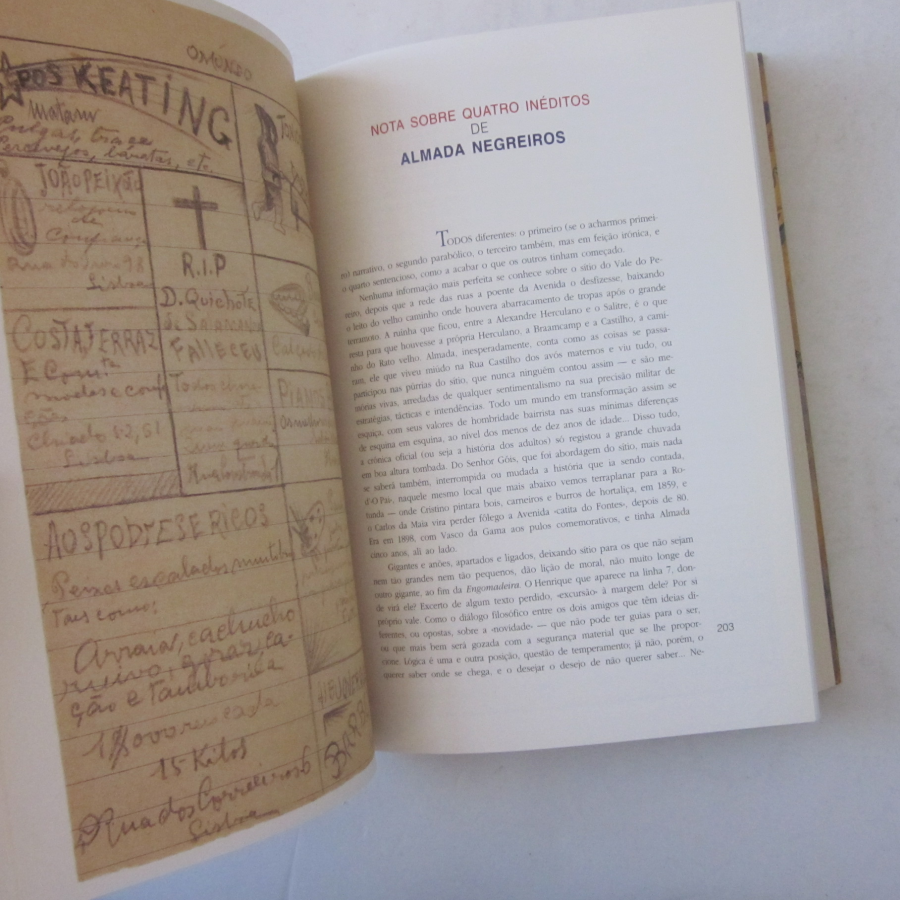 OMUNDO
PÓS KEATING
matam
Pulgas, traças
Percevejos, baratas, etc.
JOÃO PEIXÃO
retogios
de
Confiança
98
Lisboa
R.I.P
D. Quichote
de Salamanca
FALLECEU
COSTA FERRAZ
E Comta
modas e conf
ção
Chiado
Lisboa
PIANOS
AOS POBRES E RICOS
Peixes escalados muito
Taes como:
Arraia, cachucho
ruivo,
ção e Tamboril
15 Kilos
Rua dos Correeiros 6
Lisboa
NOTA SOBRE QUATRO INÉDITOS
DE
ALMADA NEGREIROS
TODOS diferentes: o primeiro (se o acharmos primei-
ro) narrativo, o segundo parabólico, o terceiro também, mas em feição irónica, e
o quarto sentencioso, como a acabar o que os outros tinham começado.
Nenhuma informação mais perfeita se conhece sobre o sítio do Vale do Pe-
reiro, depois que a rede das ruas a poente da Avenida o desfizesse, baixando
o leito do velho caminho onde houvera abarracamento de tropas após o grande
terramoto. A ruinha que ficou, entre a Alexandre Herculano e o Salitre, é o que
resta para que houvesse a própria Herculano, a Braamcamp e a Castilho, a cami-
nho do Rato velho. Almada, inesperadamente, conta como as coisas se passa-
ram, ele que viveu miúdo na Rua Castilho dos avós maternos e viu tudo, ou
participou nas púrrias do sítio, que nunca ninguém contou assim — e são me-
mórias vivas, arredadas de qualquer sentimentalismo na sua precisão militar de
estratégias, tácticas e intendências. Todo um mundo em transformação assim se
esquiça, com seus valores de hombridade bairrista nas suas mínimas diferenças
de esquina em esquina, ao nível dos menos de dez anos de idade... Disso tudo,
a crónica oficial (ou seja a história dos adultos) só registou a grande chuvada
em boa altura tombada. Do Senhor Góis, que foi abordagem do sítio, mais nada
se saberá também, interrompida ou mudada a história que ia sendo contada,
d'«O Pai», naquele mesmo local que mais abaixo vemos terraplanar para a Ro-
tunda — onde Cristino pintara bois, carneiros e burros de hortaliça, em 1859, e
o Carlos da Maia vira perder fôlego a Avenida «catita do Fontes», depois de 80.
Era em 1898, com Vasco da Gama aos pulos comemorativos, e tinha Almada
cinco anos, ali ao lado.
Gigantes e anões, apartados e ligados, deixando sítio para os que não sejam
nem tão grandes nem tão pequenos, dão lição de moral, não muito longe de
outro gigante, ao fim da Engomadeira. O Henrique que aparece na linha 7, don-
de virá ele? Excerto de algum texto perdido, «excursão» à margem dele? Por si
próprio vale. Como o diálogo filosófico entre os dois amigos que têm ideias di-
ferentes, ou opostas, sobre a «novidade» — que não pode ter guias para o ser,
ou que mais bem será gozada com a segurança material que se lhe propor-
cione. Lógica é uma e outra posição, questão de temperamento; já não, porém, o
querer saber onde se chega, e o desejar o desejo de não querer saber... Ne-
203